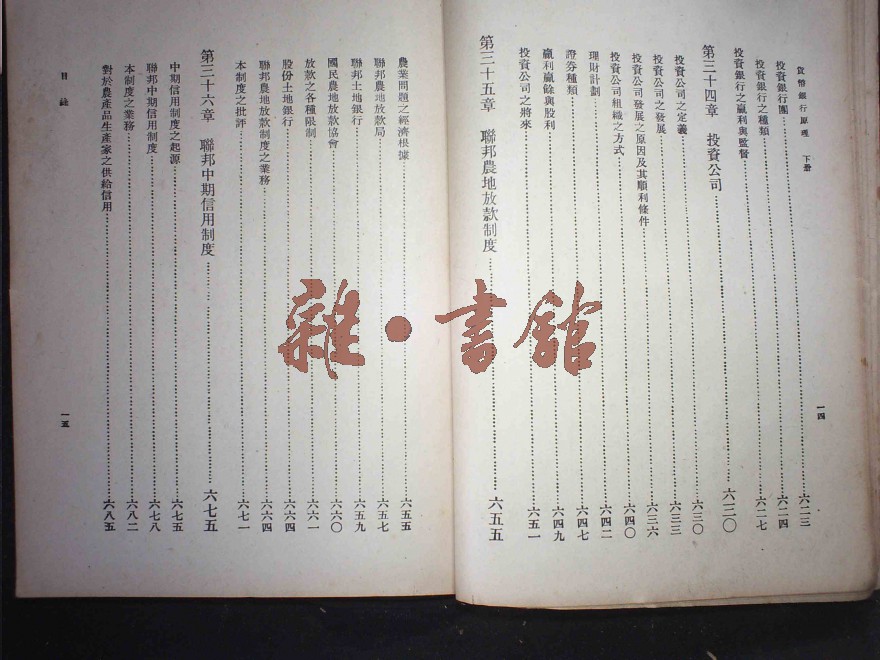 貨幣銀行原理 下冊
投資銀行團……六二三
投資銀行之種類……六二四
投資銀行之贏利與監督……六二七
第三十四章 投資公司……六三〇
投資公司之定義……六三〇
投資公司之發展……六三三
投資公司發展之原因及其順利條件……六三六
投資公司組織之方式……六四〇
理財計劃……六四二
證券種類……六四七
贏利贏餘與股利……六四九
投資公司之將來……六五一
第三十五章 聯邦農地放款制度……六五五
一四
農業問題之經濟根據……六五五
聯邦農地放款局……六五七
聯邦土地銀行……六五九
國民農地放款協會……六六〇
放款之各種限制……六六一
股份土地銀行……六六四
聯邦農地放款制度之業務……六六四
本制度之批評……六七一
第三十六章 聯邦中期信用制度……六七五
中期信用制度之起源……六七五
聯邦中期信用制度……六七八
本制度之業務……六八二
對於農產品生產家之供給信用……六八五
目錄
一五
雜·書館